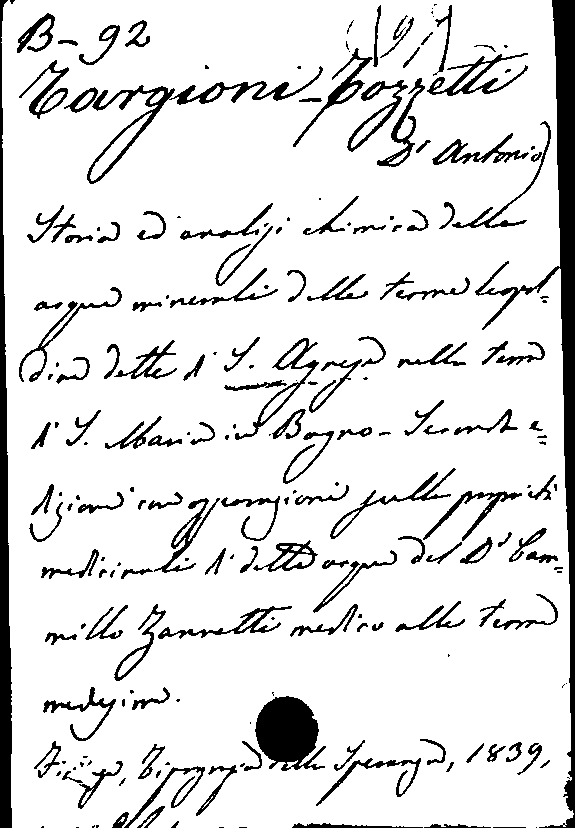 B-92
Targioni-Tozzetti
(Dr Antonio)
Storia ed analisi chimica delle
acque minerali delle terme leopol-
dine dette di S. Agnese nella terra
di S. Maria in Bagno - Seconda e-
dizione con osservazioni sulle proprietà
medicinali di dette acque del Dr Cam-
millo Zannetti medico alle terme
medesime.
Firenze, Tipografia della Speranza, 1839,